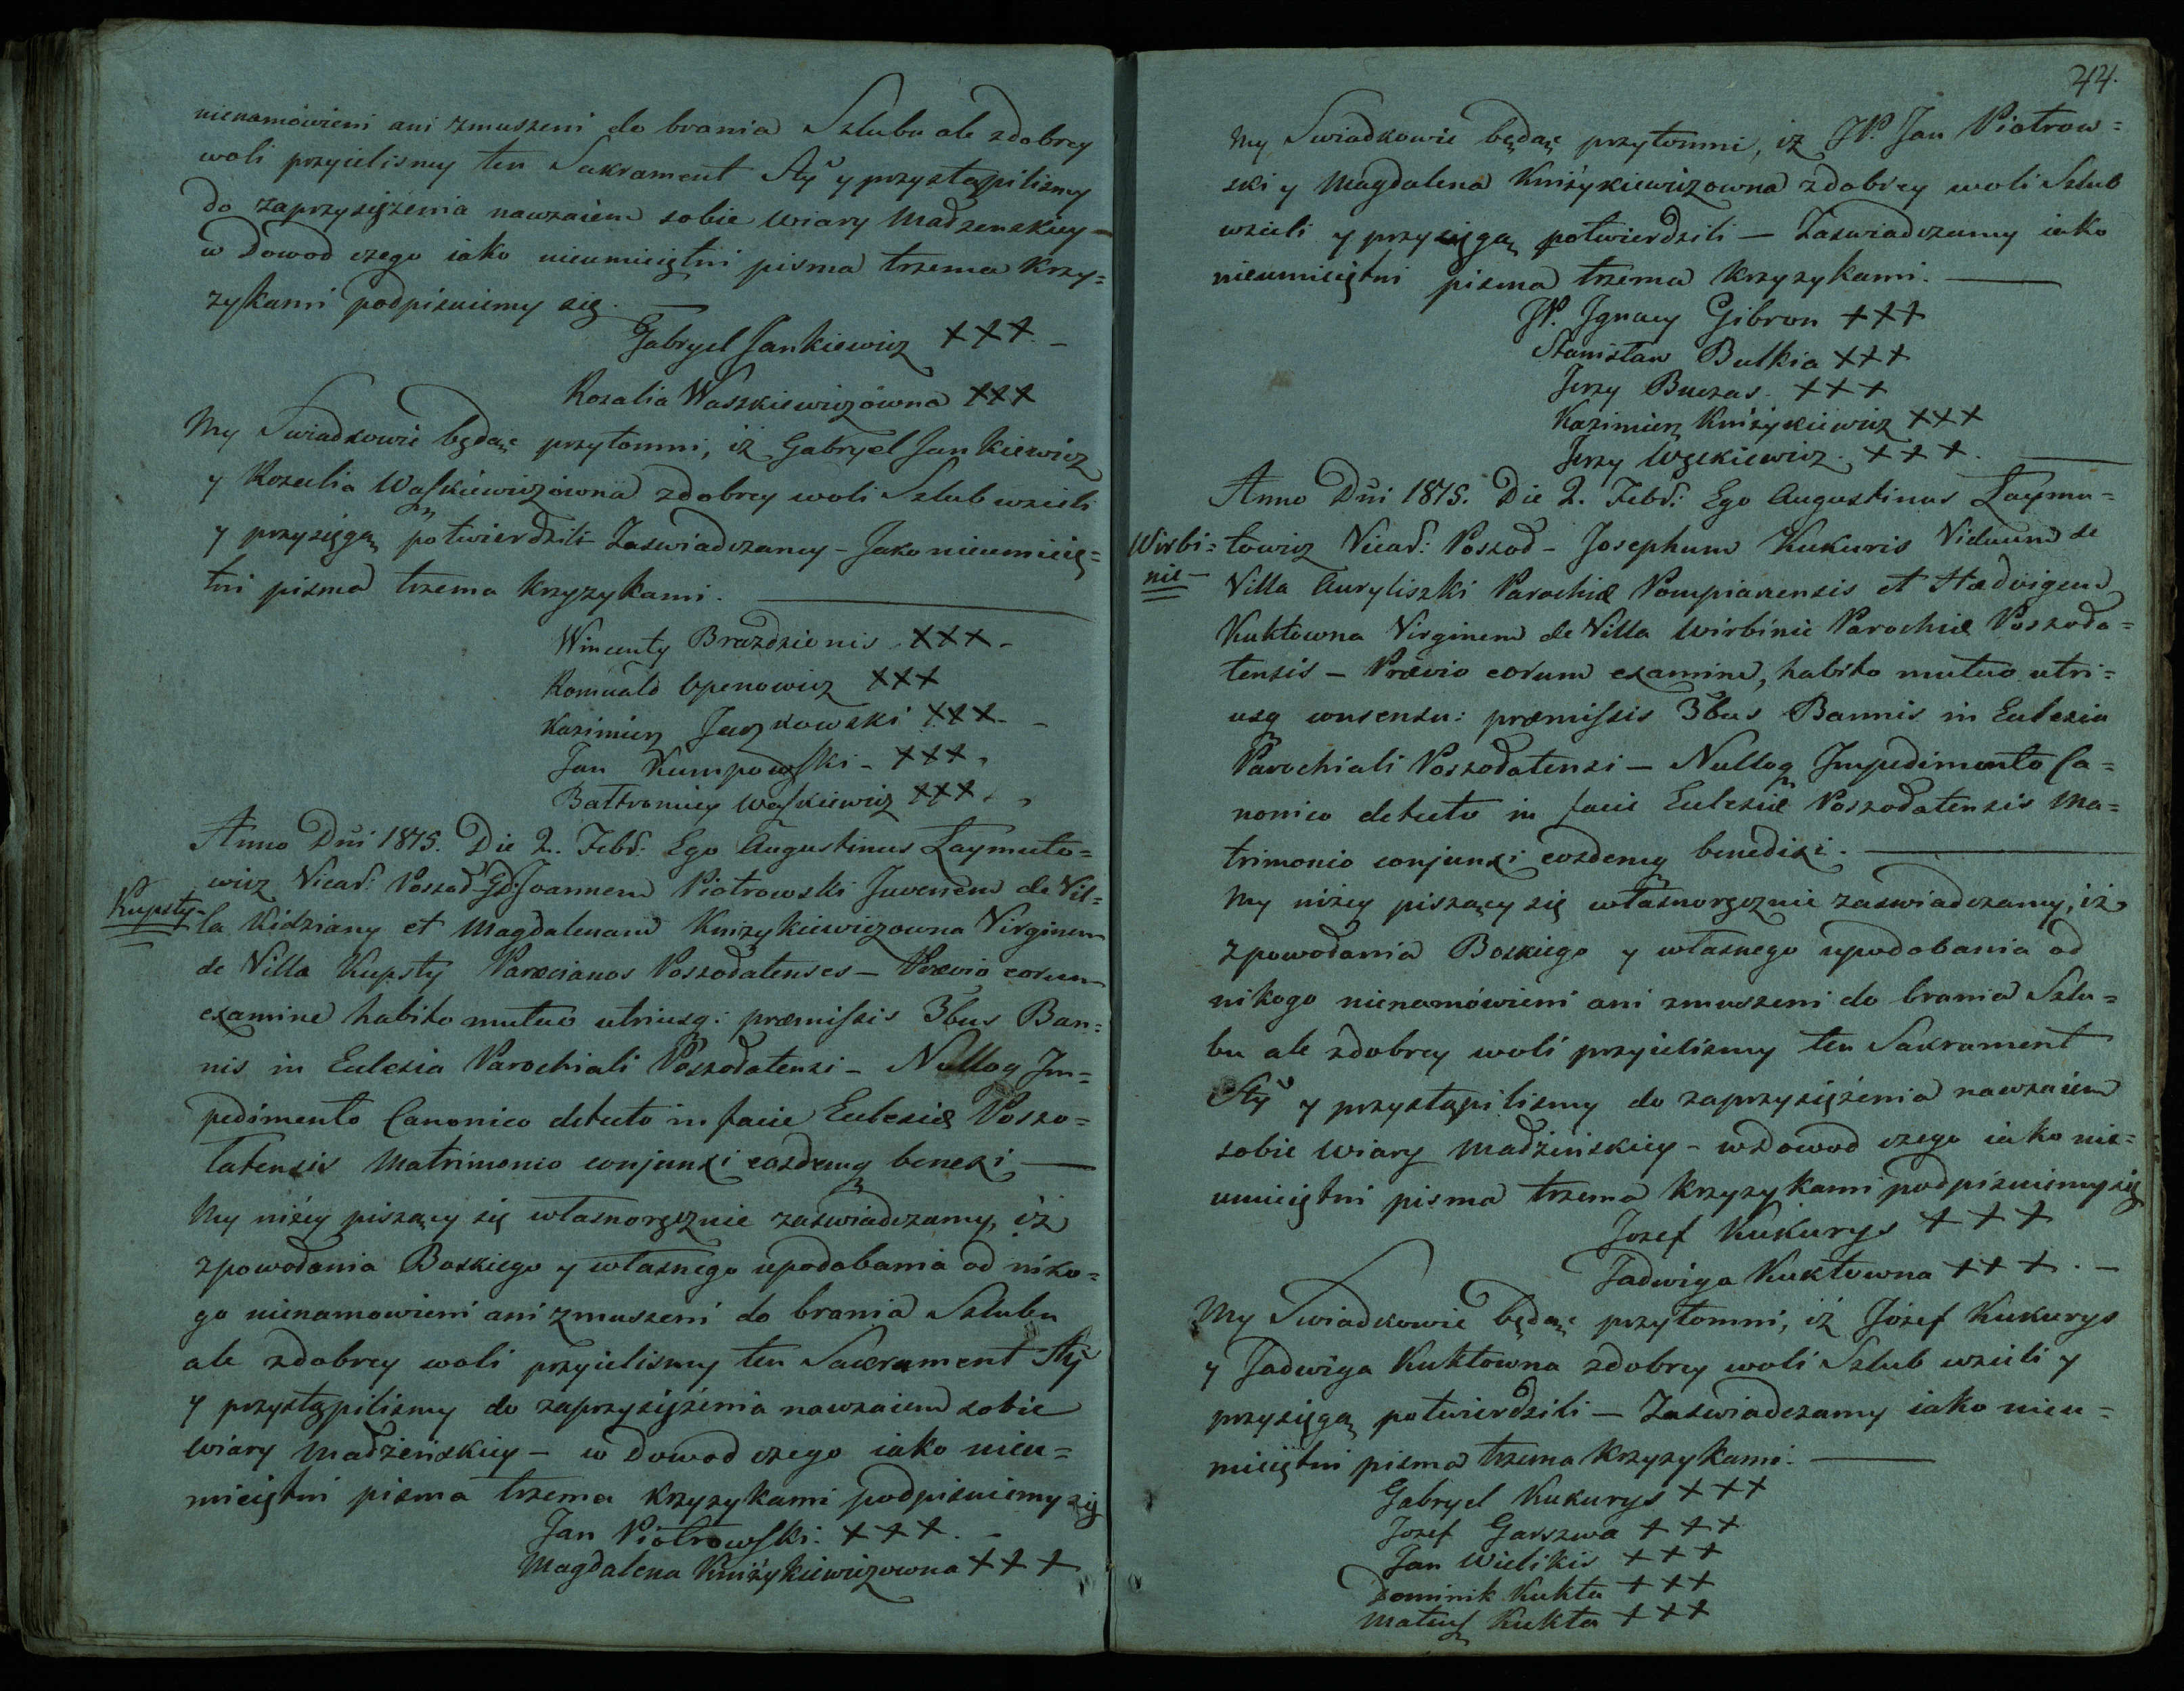 nienamówieni ani zmuszeni do brania Szlubu ale zdobrey
woli przyieliśmy ten Sakrament Sty y przystąpiliśmy
do zaprzysiężenia nawzaiem sobie wiary Madżenskiey —
w dowod czego iako nieumieiętni pisma trzema krzy=
zykami podpisuiemy się. —
Gabryel Jankiewicz +++. —
Rozalia Waszkiewiczówna +++
My Swiadkowie będąc przytomni, iż Gabryel Jankiewicz
y Rozalia Waskiewiczówna zdobrey woli Szlub wzieli
y przysięgą potwierdzili Zaswiadczamy – Jako nieumieię=
tni pisma trzema krzyzykami. —
Wincenty Brazdzionis +++ –
Romuald Openowicz +++
Kazimierz Jaczkowski +++ –
Jan Kumpowski – +++ .
Bałtromiey Waskiewicz +++ .
Anno Dni 1815. Die 2. Febr: Ego Augustinus Laymuto=
wicz Vicar: Poszod – Gd: Joannem Piotrowski Juvenem de Vil=
Kupsty – la Kidziany et Magdalenam Knizykiewiczowna Virginem
de Villa Kupsty Parœcianos Poszodatenses – Prævio eorum
examine habito mutuo utriusq: præmissis 3bus Ban=
nis in Eclesia Parochiali Poszodatensi – Nulloq Im=
pedimento Canonico detecto in facie Eclesiæ Poszo=
tatensis Matrimonio conjunxi eosdemq benexi —
My niżey piszący się własnoręcznie zaświadczamy, iż
z powodania Boskiego y własnego upodobania od niko=
go nienamowieni ani zmuszeni do brania Szlubu
ale zdobrey woli przyieliśmy ten Sacrament Sty
y przystąpiliśmy do zaprzysiężenia nawzaiem sobie
wiary Madżeńskiey – w dowod czego iako nieu=
mieiętni pisma trzema krzyzykami podpisuiemy się
Jan Piotrowski. +++. –
Magdalena Kniżykiewiczowna +++
44.
My Swiadkowie będąc przytomni, iż JP. Jan Piotrow=
ski y Magdalena Kniżykiewiczowna zdobrey woli Szlub
wzieli y przysięgą potwierdzili — Zaswiadczamy iako
nieumieiętni pisma trzema krzyzykami. —
JP. Ignacy Gibron +++
Stanisław Butkia +++
Jerzy Buczas. +++
Kazimierz Kniżykiewicz +++
Jerzy Węckiewicz. +++. —
Anno Dni 1815. Die 2. Febr: Ego Augustinus Laymu=
Wirbi= towicz Vicar: Poszod – Josephum Kukuris Viduum de
nie – Villa Auryliszki Parochiæ Pompianensis et Hædvigem
Kuktowna Virginem de Villa Wirbinie Parochiæ Poszoda=
tensis – Prævio eorum examine, habito mutuo utri=
usq consensu: præmissis 3bus Bannis in Eclesia
Parochiali Poszodatensi – Nulloq Impedimento Ca=
nonico detecto in facie Eclesiæ Poszodatensis Ma=
trimonio conjunxi eosdemq benedixi. —
My niżey piszący się własnoręcznie zaswiadczamy, iż
z powodania Boskiego y własnego upodobania od
nikogo nienamówieni ani zmuszeni do brania Szlu=
bu ale zdobrey woli przyieliśmy ten Sakrament
Sty y przystąpiliśmy do zaprzysiężenia nawzaiem
sobie wiary Madżeńskiey – w dowod czego iako nie=
umieiętni pisma trzema krzyzykami podpisuiemy się
Jozef Kukurys +++
Jadwiga Kuktowna +++ . –
My Swiadkowie będąc przytomni, iż Józef Kukurys
y Jadwiga Kuktowna zdobrey woli Szlub wzieli y
przysięgą potwierdzili — Zaswiadczamy iako nieu=
mieiętni pisma trzema krzyzykami. —
Gabryel Kukurys +++
Jozef Garszwa +++
Jan Wielikis +++
Dominik Kukta +++
Mateusz Kukta +++